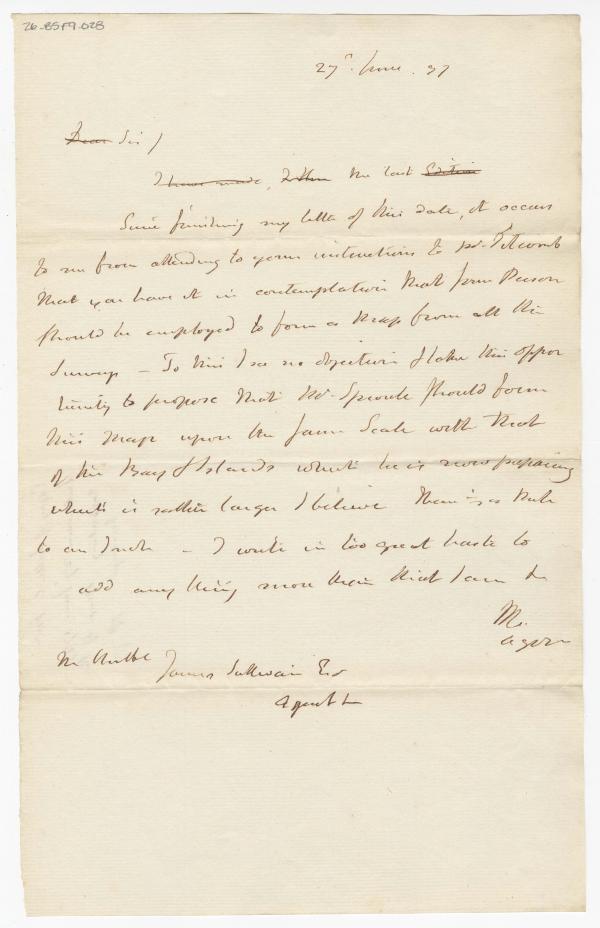 26-BSF9-028
27th June. 97
Dear Sir /
I have made, the last
Since finishing my letter of this date, it occurs
to me from attending to your instructions to Mr. Titcomb
that you have it in contemplation that some Person
should be employed to form a Map from all the
Surveys – To this I see no objection & take this oppor
tunity to propose that Mr. Sproule should form
this Map upon the same Scale with that
of the Bay & Islands which he is now preparing
which is rather larger I believe than
to an Inch – I write in too great haste to
add any thing more than that I am &c
Agent
The Honble James Sullivan Esqr
Agent &c